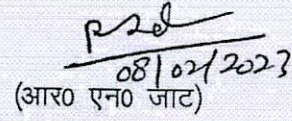 08/02/2023
(आर0 एन0 जाट)